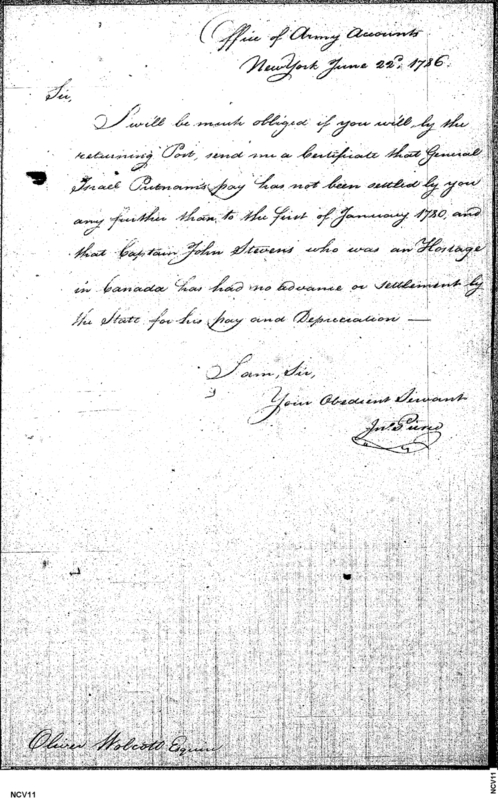 Office of Army Accounts
New York June 22d. 1786.
Sir,
I will be much obliged if you will by the
returning Post, send me a Certificate that General
Israel Putnam's pay has not been settled by you
any further than to the first of January 1780, and
that Captain John Stevens who was an Hostage
in Canada has had no advance or settlement by
the State for his pay and Depreciation —
I am, Sir,
Your Obedient Servant
Jno. Pierce
Oliver Wolcott Esquire
NCV11
NCV11